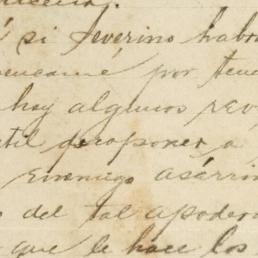 si Severino habra
por tene
hay algunos rev
til desaponer a
Enemigo asarrim
del tal apodera
que le hace los